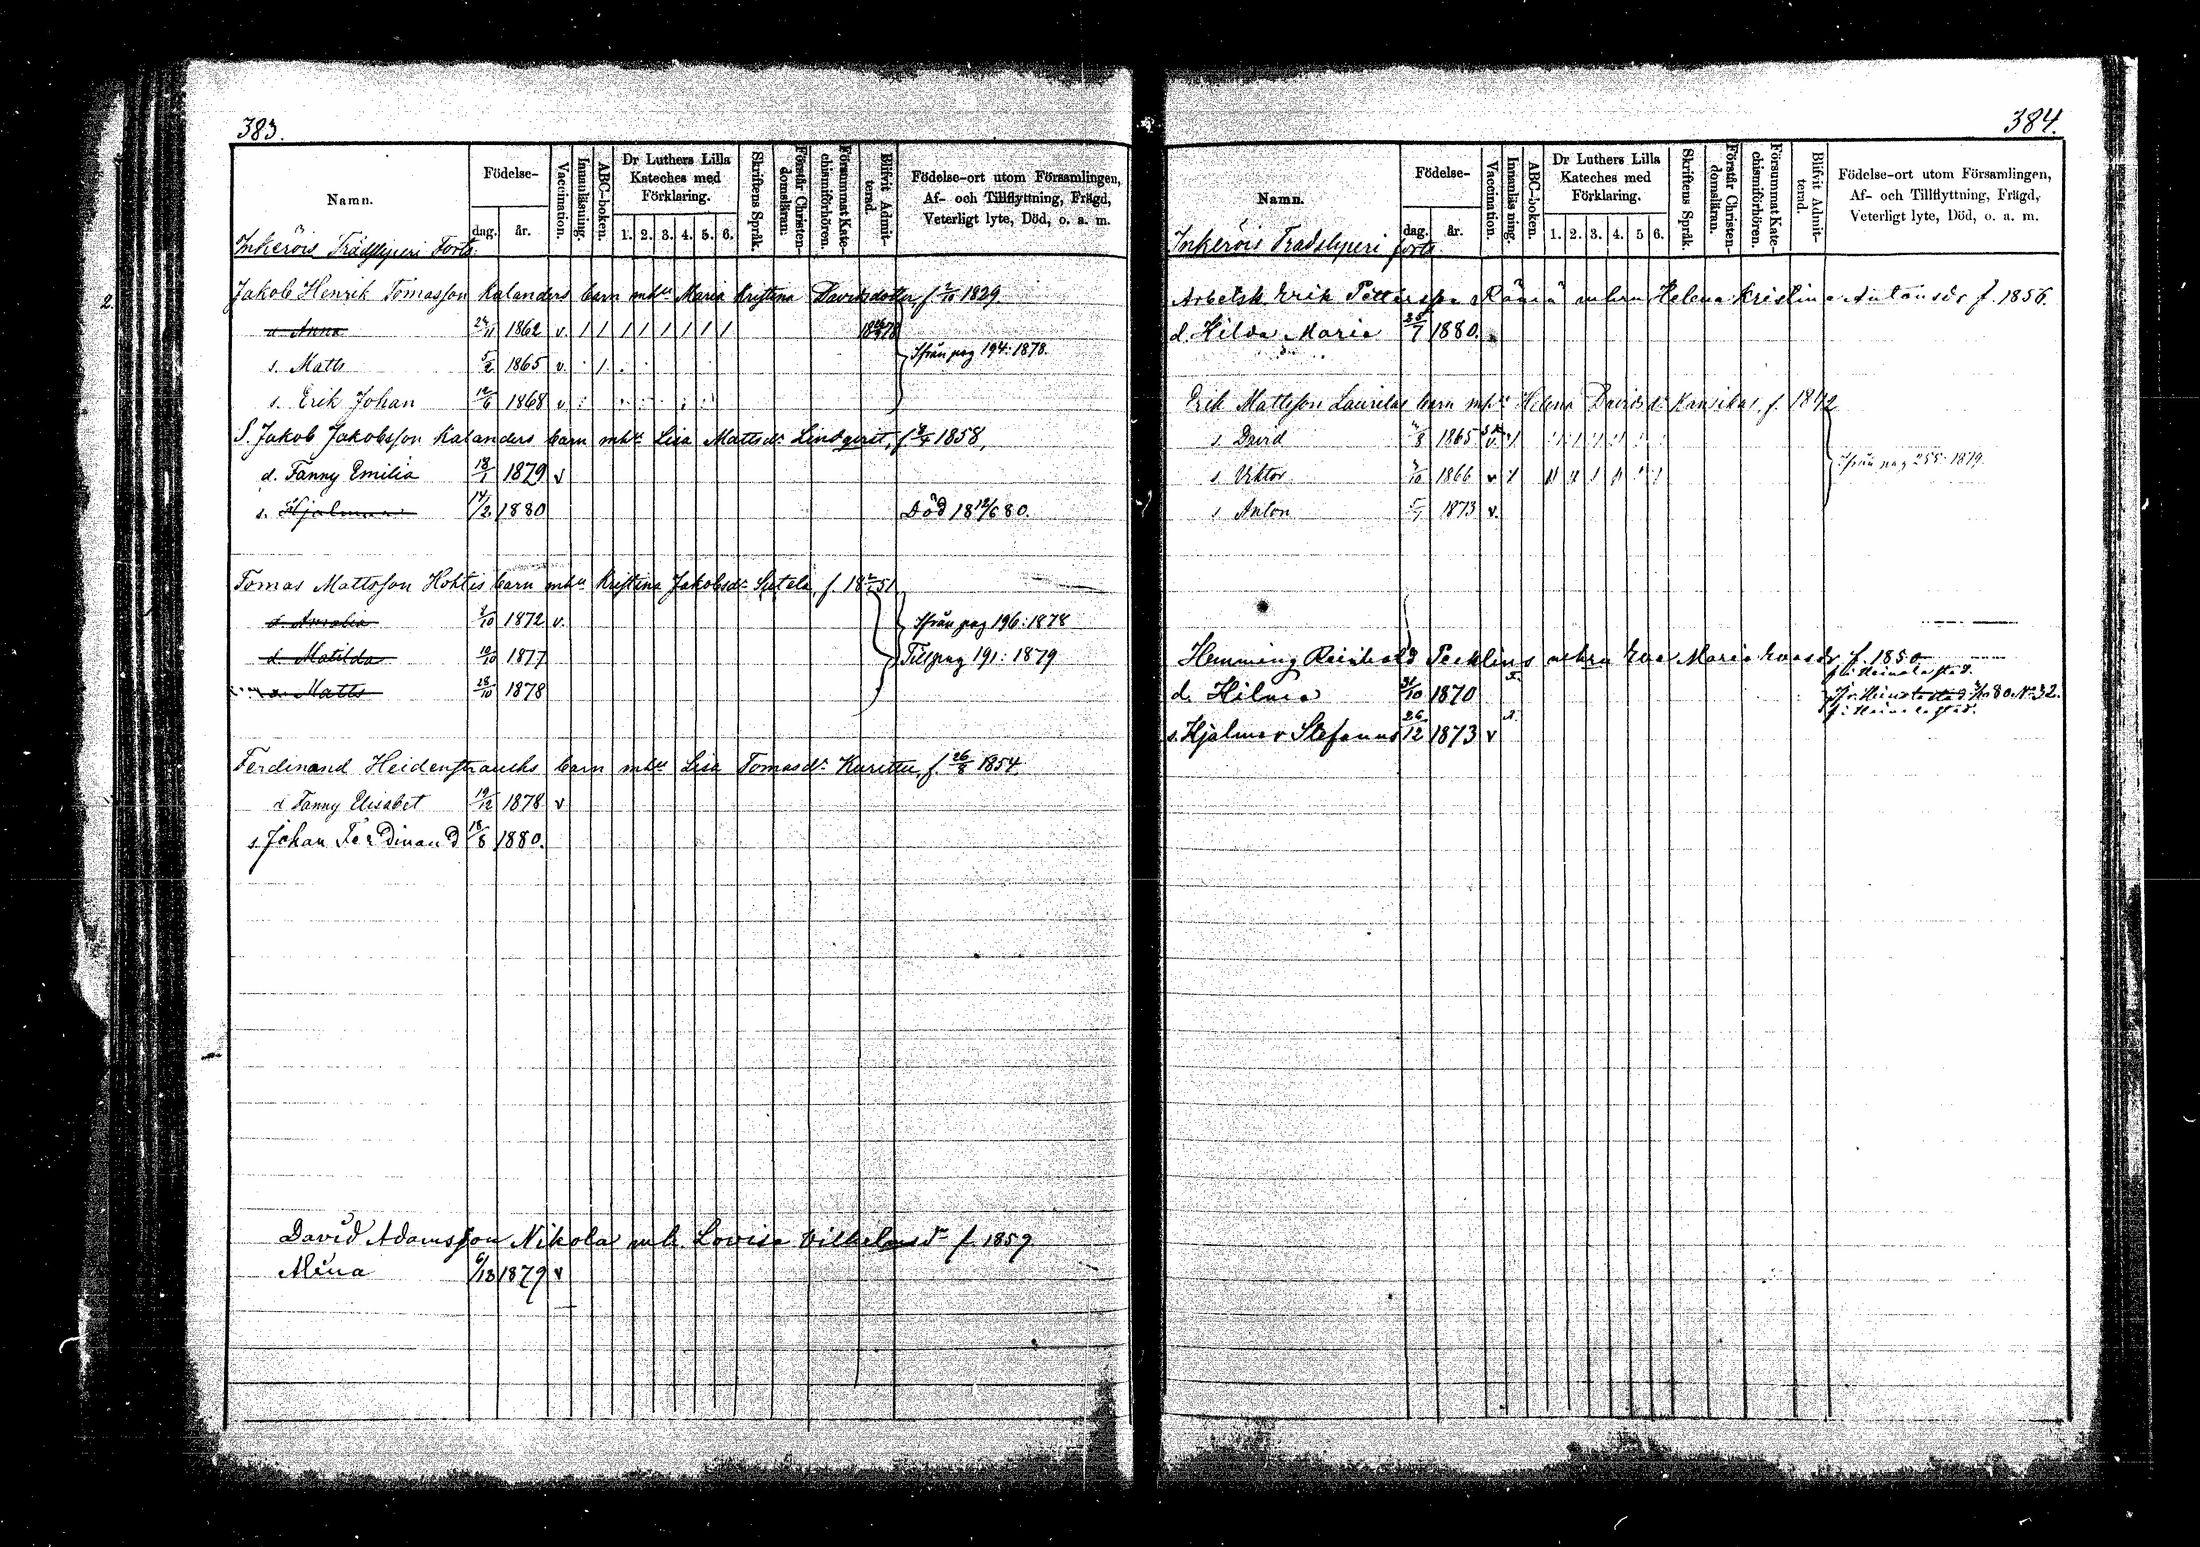 383.
Namn.
Födelse-
dag.
år.
Vaccination.
Innanläsning.
ABC-boken.
Dr Luthers Lilla
Kateches med
Förklaring.
1. 2. 3. 4. 5. 6.
Skriftens Språk.
Förstår Christen-
domsläran.
Försummat Kate-
chismiförhören.
Blifvit Admit-
terad.
Födelse-ort utom Församlingen,
Af- och Tillflyttning, Frägd,
Veterligt lyte, Död, o. a. m.
Inkerois Trädsliperi Forts.
Jakob Henrik Tomasson Kalanders barn mhu Maria Kristina Davidsdotter, f. 2/10 1829
d. Anna 24/11 1862 v. / / / / / / / / 78
s. Matts 5/2 1865 v. /
Ifrån pag 194: 1878.
s. Erik Johan 12/6 1868 v
S. Jakob Jakobsson Kalanders barn mhu Lisa Mattsdr Lindqvist, f 1858,
d. Fanny Emilia 18/1 1879 v
s. Hjalmar 14/2 1880 Död 18 12/6 80.
Tomas Mattsson Hohtis barn mhu Kristina Jakobsdr Satela, f. 18 51
d. Amalia 2/10 1872 v. Ifrån pag 196: 1878
d. Matilda 10/10 1877 Till pag 191: 1879
s. Matts 28/10 1878
Ferdinand Heidenstrauchs barn mhu Lisa Tomasdr Kurittu, f. 26/8 1854.
d Fanny Elisabet 19/12 1878 v
s. Johan Ferdinand 18/8 1880.
David Adamsson Nikola mh. Lovisa Vilhelmsdr f. 1859
Alina 6/13 1879 v
384.
Namn.
Födelse-
dag.
år.
Vaccination.
Innanläsning.
ABC-boken.
Dr Luthers Lilla
Kateches med
Förklaring.
1. 2. 3. 4. 5 6.
Skriftens Språk.
Förstår Christen-
domsläran.
Försummat Kate-
chismiförhören.
Blifvit Admit-
terad.
Födelse-ort utom Församlingen,
Af- och Tillflyttning, Frägd,
Veterligt lyte, Död, o. a. m.
Inkerois Trädsliperi forts.
Arbetsk. Erik Pettersson Rämä mhru Helena Kristina Antonsdr f. 1856.
d. Hilda Maria 25/7 1880.
Erik Mattsson Laurilas barn mhu Helena Davidsdr Kansikas f. 1842
s. David 1865 v.
s. Viktor 1866 v
Ifrån pag 255: 1879.
s Anton 1873 v.
Hemming Reinhold Pecklins mhru Eva Maria Evasdr f. 1850
f. i Heinola stad.
d. Hilma 31/10 1870
Fr. Heinola stad 80 No 32.
f. i Heinola stad.
s. Hjalmar Stefanus 26/12 1873 v